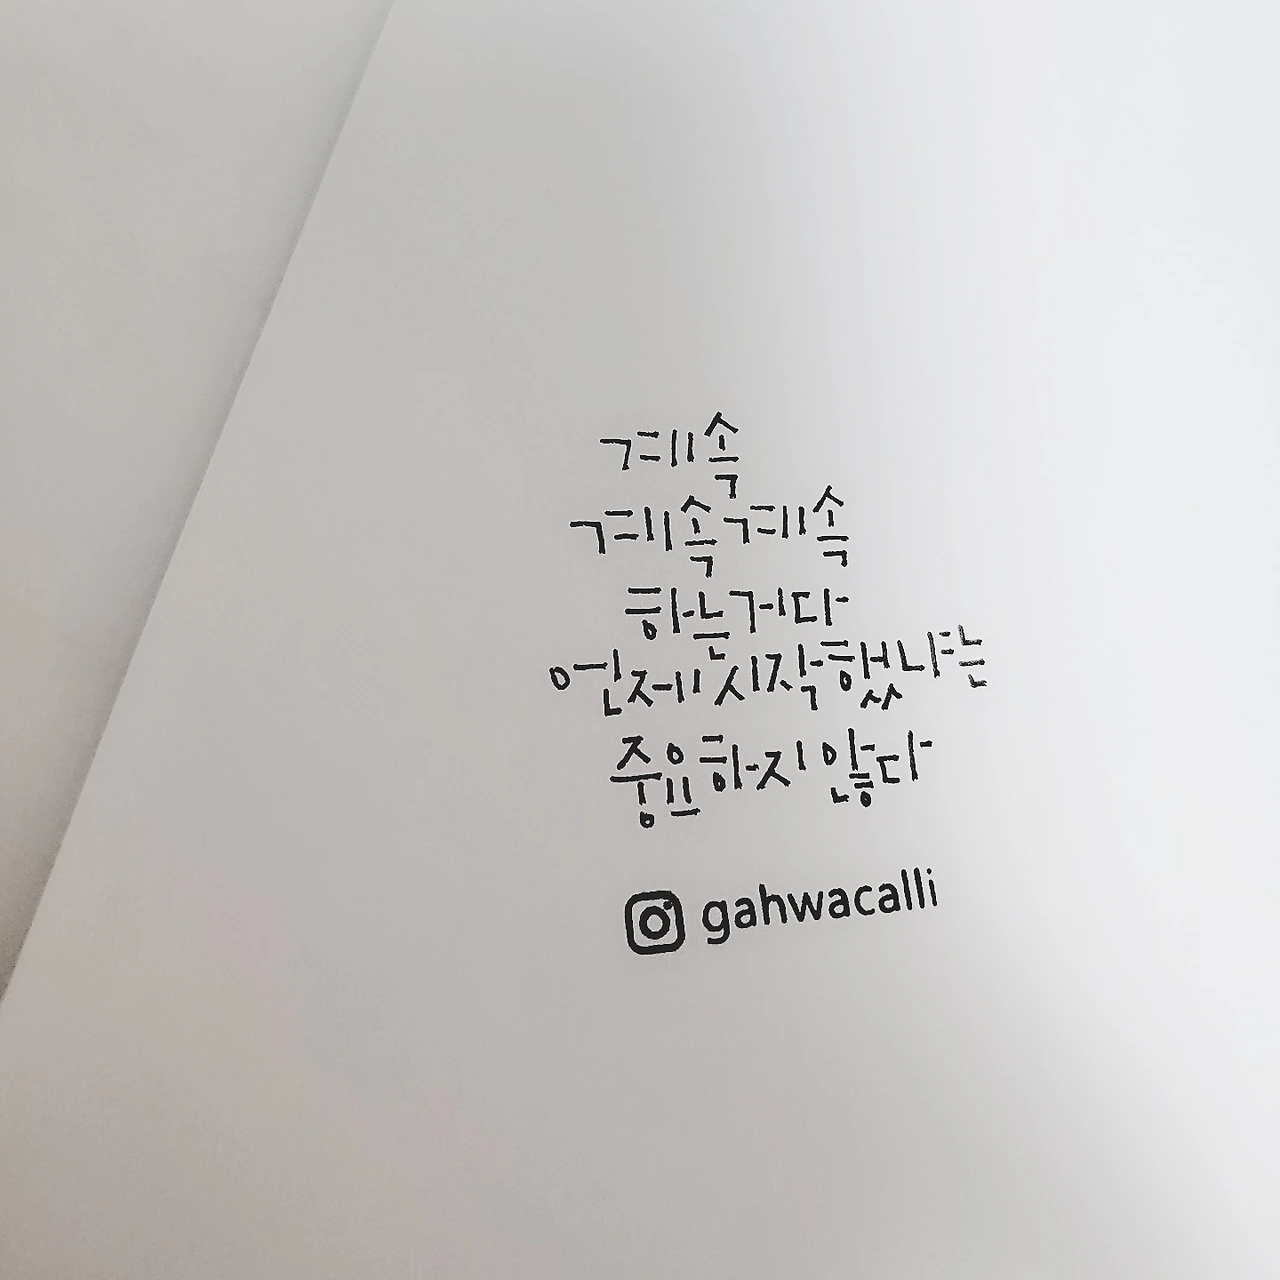 계속
계속계속
하는거다
언제시작했냐는
중요하지않다
gahwacalli